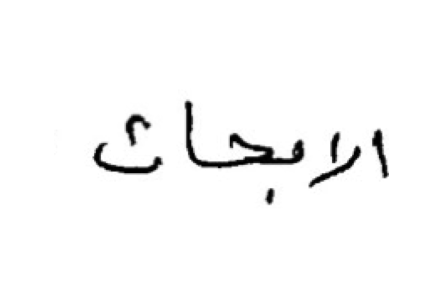 الابحاث